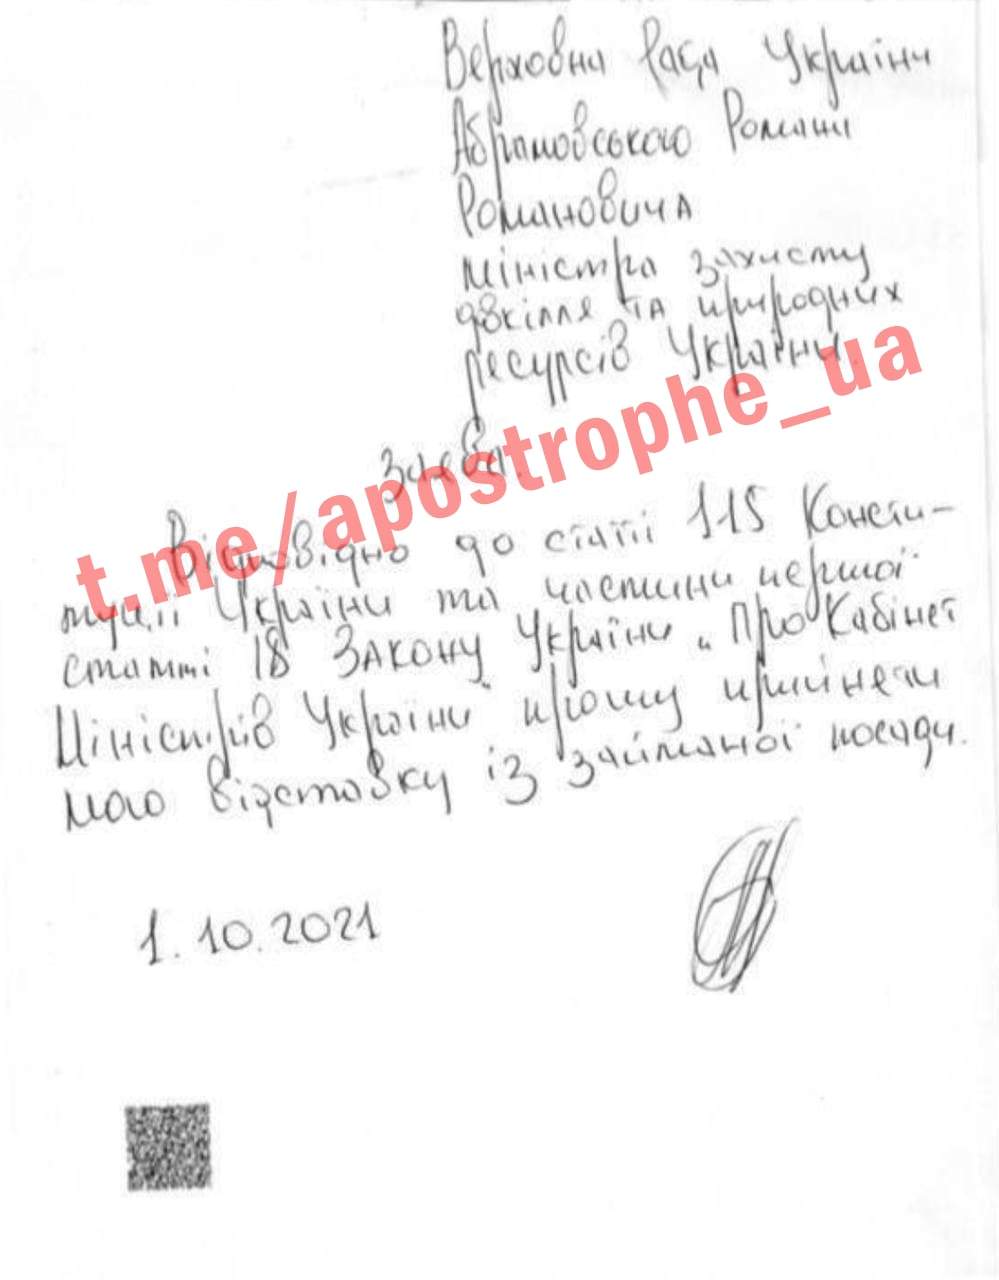 Верховна Рада України
Абрамовського Романа
Романовича
міністра захисту
довкілля та природних
ресурсів України.
Заява.
t.me/apostrophe_ua
Відповідно до статті 115 Консти-
туції України та частини першої
статті 18 Закону України „Про Кабінет
Міністрів України" прошу прийняти
мою відставку із займаної посади.
1.10.2021